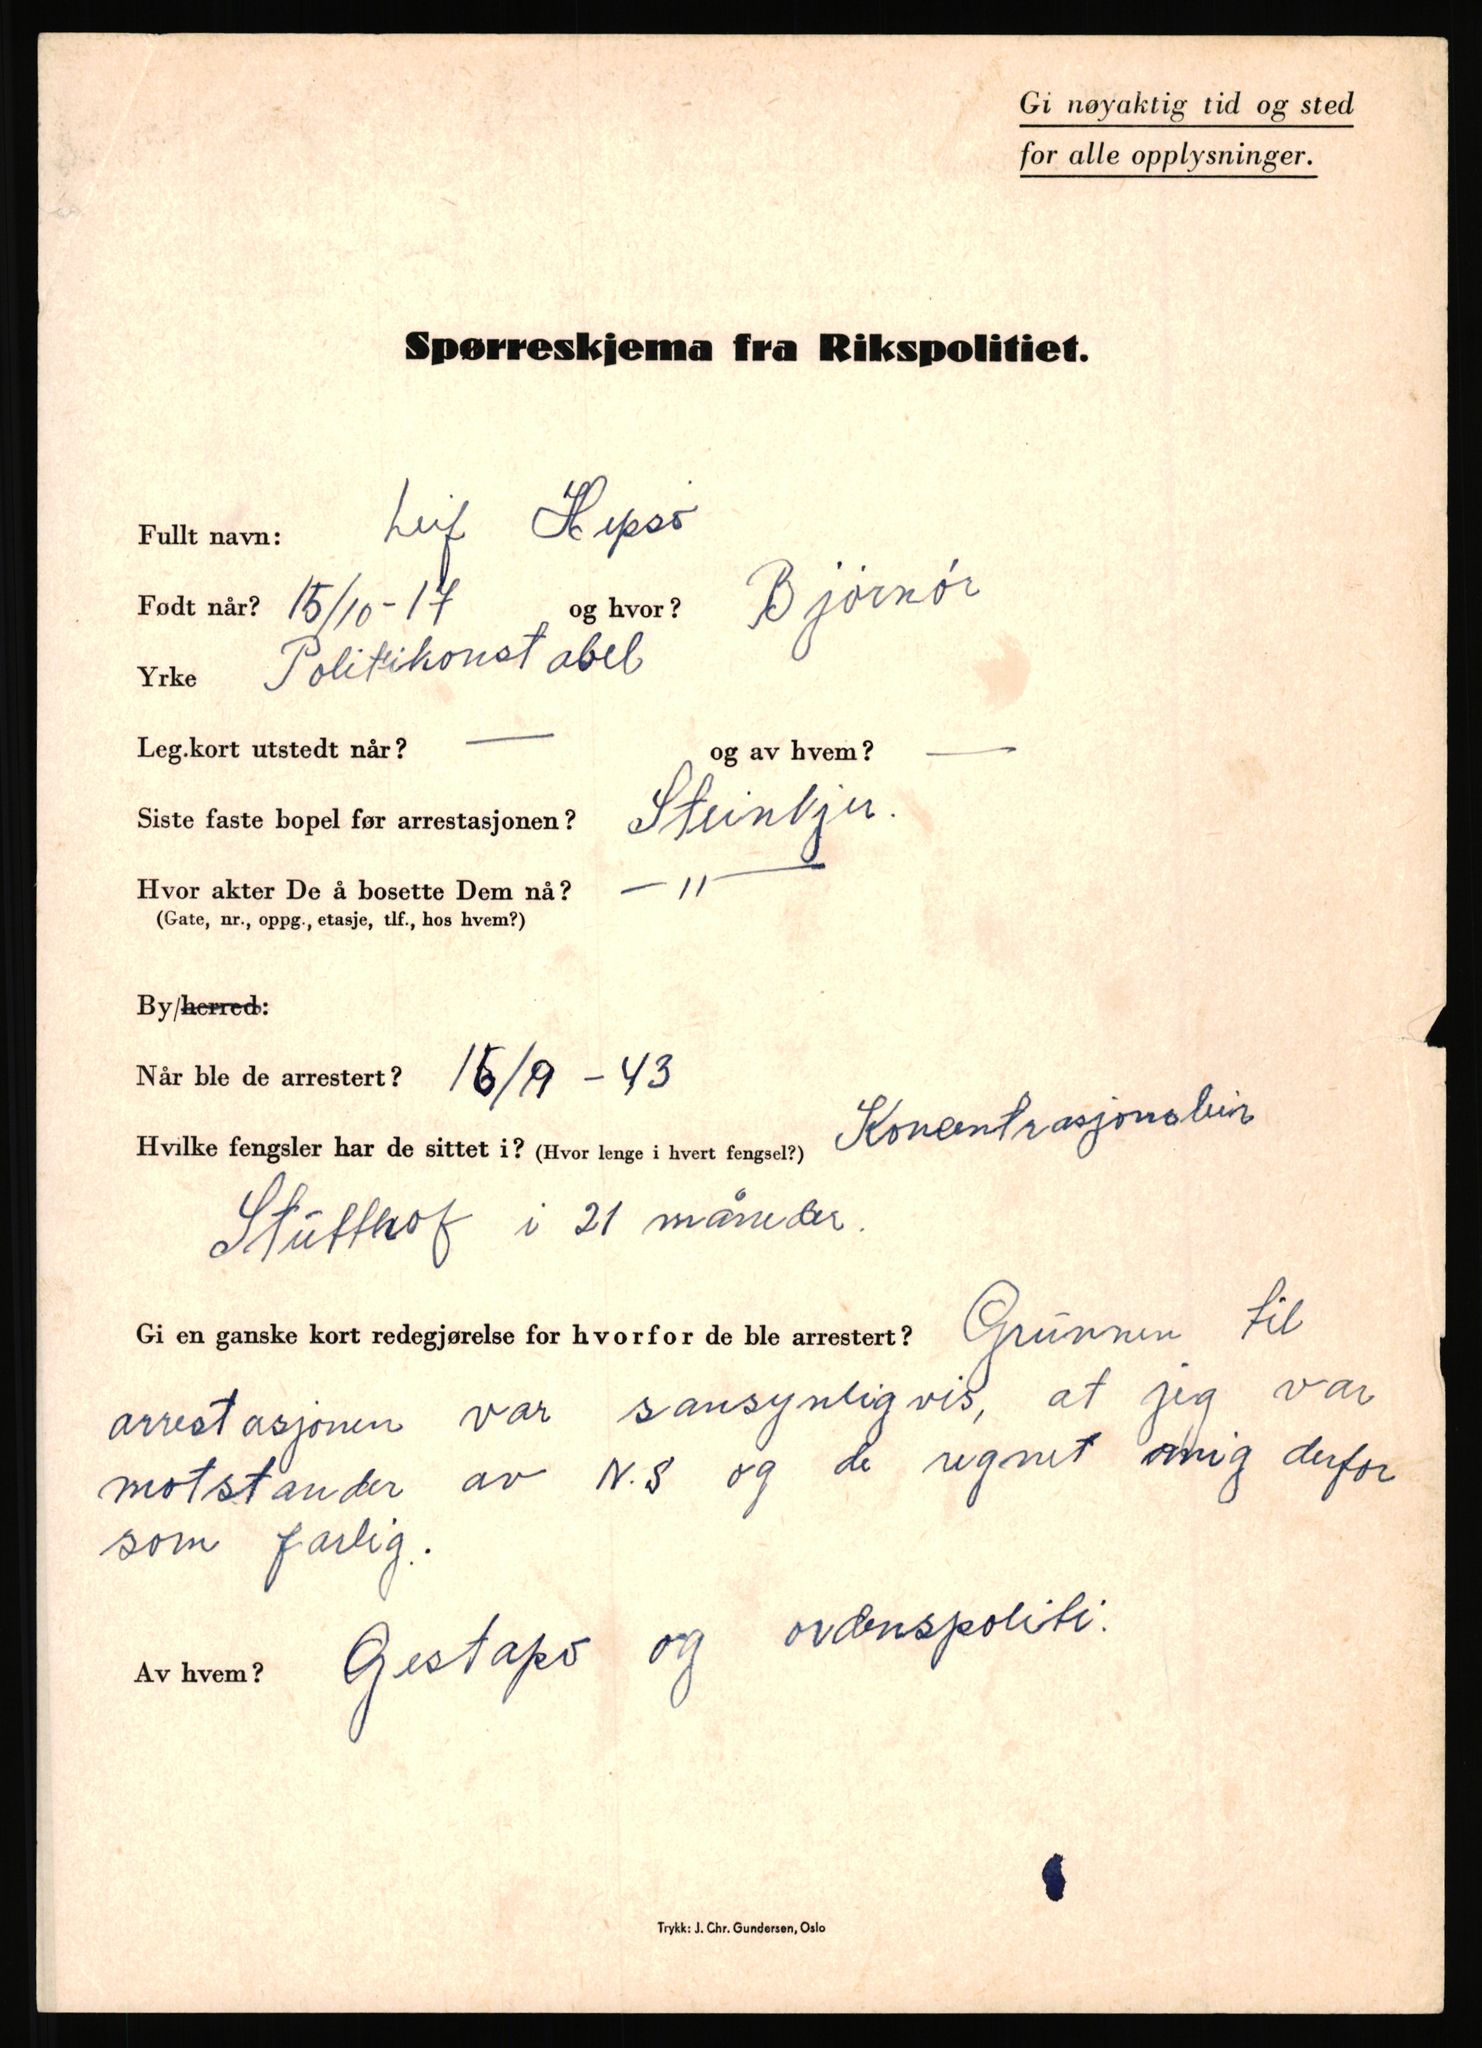 Gi nøyaktig tid og sted
for alle opplysninger.
Spørreskjema fra Rikspolitiet.
Fullt navn: Leif Hepsö
Født når? 15/10-17 og hvor? Bjórnór
Yrke Politikonstabel
Leg.kort utstedt når? — og av hvem? —
Siste faste bopel før arrestasjonen? Steinkjer.
Hvor akter De å bosette Dem nå? — " —
(Gate, nr., oppg., etasje, tlf., hos hvem?)
By/herred:
Når ble de arrestert? /9 - 43
Hvilke fengsler har de sittet i? (Hvor lenge i hvert fengsel?) Koncentrasjonsleir
Stutthof i 21 måneder.
Gi en ganske kort redegjørelse for hvorfor de ble arrestert? Grunnen til
arrestasjonen var sansynligvis, at jeg var
motstander av N.S og de regnet mig derfor
som farlig.
Av hvem? Gestapo og ordenspoliti.
Trykk: J. Chr. Gundersen, Oslo